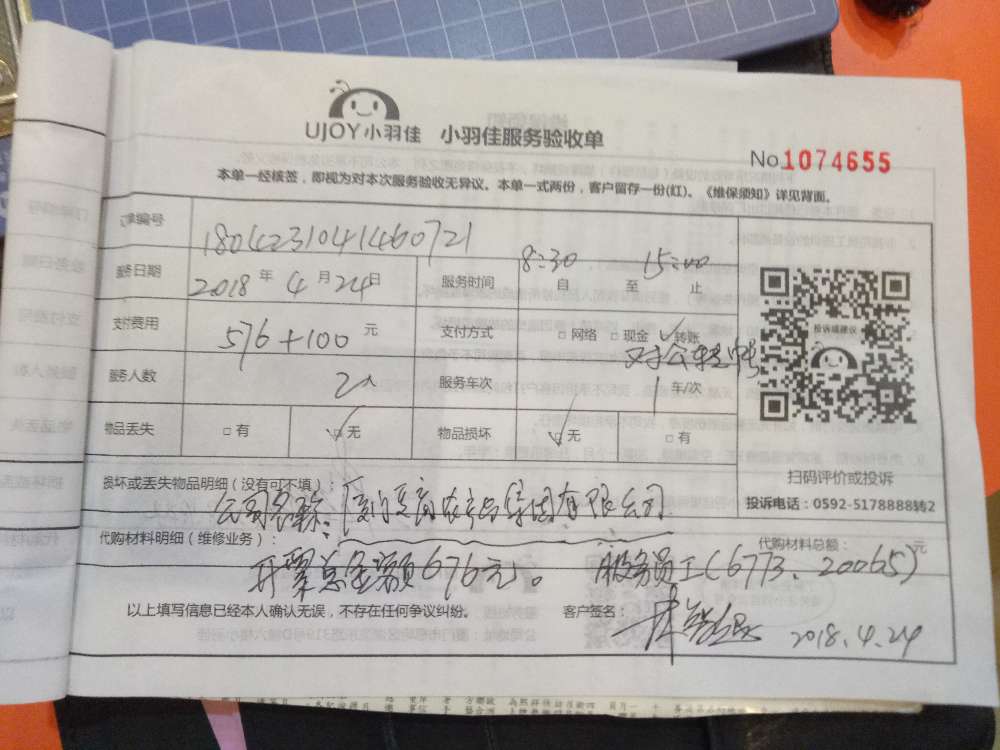 UJOY小羽佳 小羽佳服务验收单
No 1074655
本单一经核签，即视为对本次服务验收无异议。本单一式两份，客户留存一份(红)。《维保须知》详见背面。
单编号 1804231041460721
服务日期 2018年4月24日 服务时间 8:30 自 至 15:00 止
支付费用 576+100 元 支付方式 □网络 □现金 ✓转账
对公转帐
服务人数 2人 服务车次 1 车/次
物品丢失 □有 ✓无 物品损坏 ✓无 □有
投诉或建议
扫码评价或投诉
投诉电话：0592-5178888转2
损坏或丢失物品明细（没有可不填）：
公司名称：厦门夏商农产品集团有限公司
代购材料明细（维修业务）： 代购材料总额： 元
开票总金额676元。 服务员工(6773、20065)
以上填写信息已经本人确认无误，不存在任何争议纠纷。 客户签名： 2018.4.24